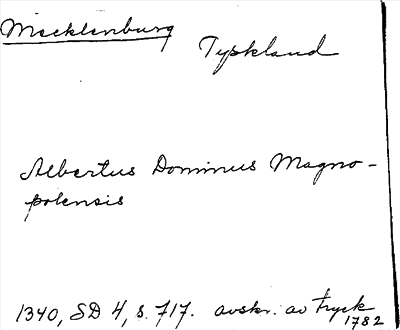 Mecklenburg
Tyskland
Albertus Dominus Magno-
polensis
1340, SD 4, s. 717. avskr. av tryck
1782